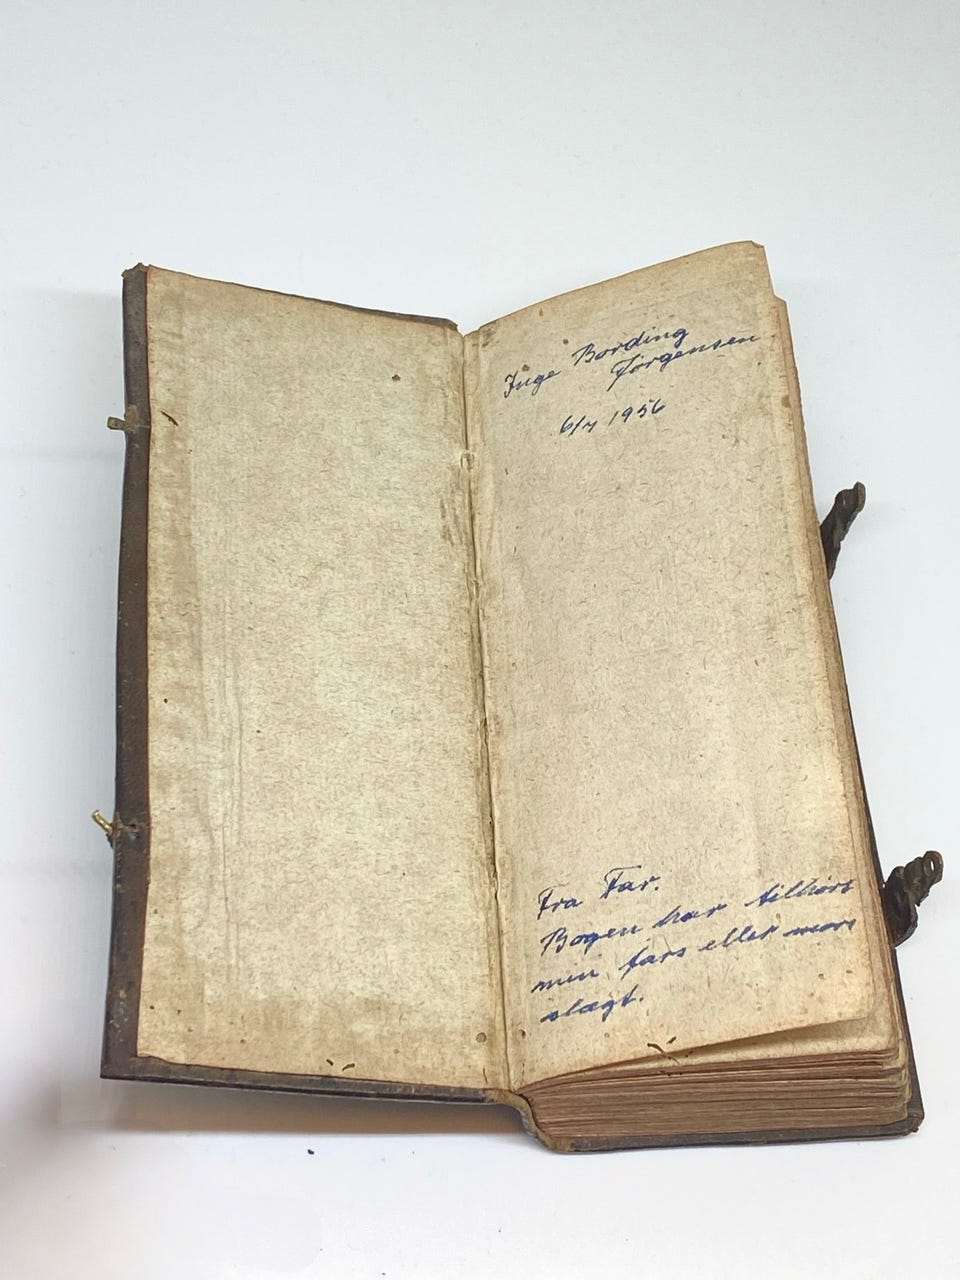 Inge Bording
Jørgensen
6/7 1956
Fra Far.
Bogen har tilhørt
min fars eller mors
slægt.